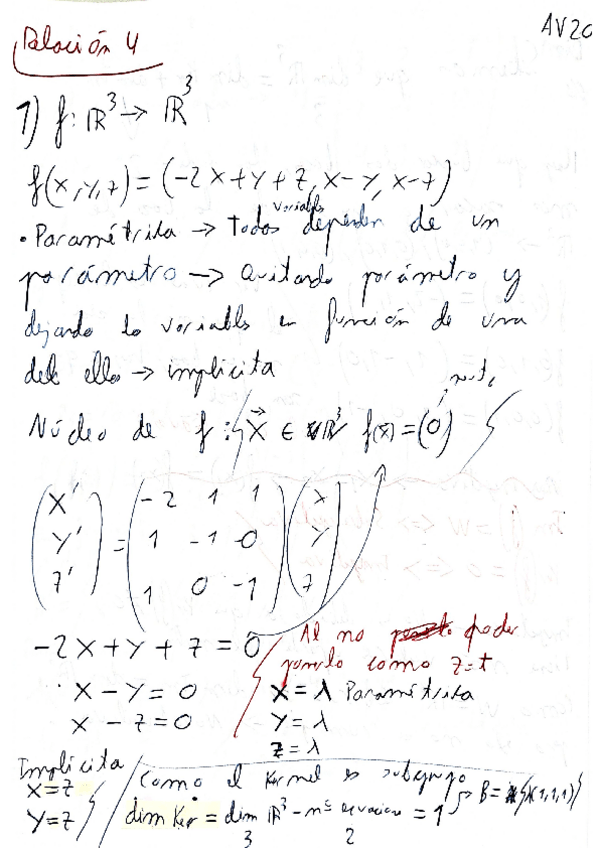 AV20
Relación 4
1) f: ℝ³ → ℝ³
f(x,y,z) = (-2x+y+z, x-y, x-z)
variables
· Paramétrica → Todas dependen de un
parámetro → Quitando parámetro y
dejando la variable en función de una
de ellas → implicita
Núcleo de f: { x⃗ ∈ ℝ³ f(x) = (0) }
(x' y' z') = (-2 1 1 / 1 -1 0 / 1 0 -1) (x y z)
-2x + y + z = 0
x - y = 0
x - z = 0
Al no poder
ponerlo como z=t
x = λ Paramétrica
y = λ
z = λ
Implicita
x=z
y=z
Como el Kernel es subgrupo
dim Ker = dim ℝ³ - nº ecuacion = 1 → B = {(1,1,1)}
3 2